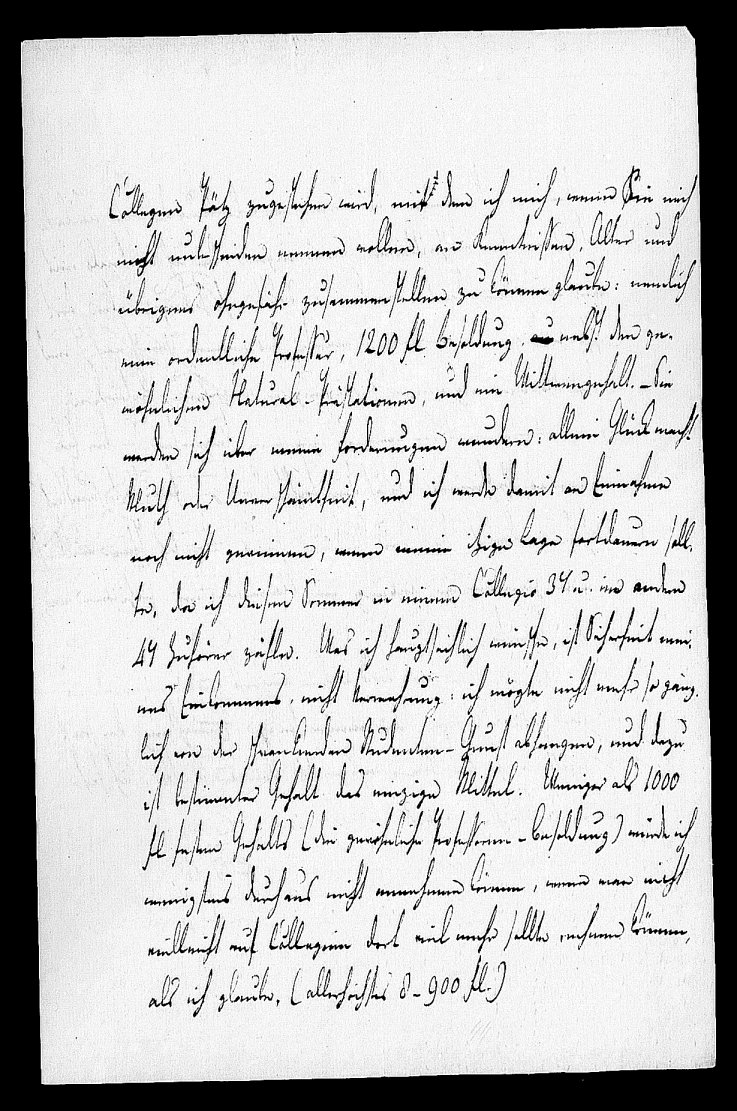 Collegen Pätz zugestehen wird, mit dem ich mich, wenn Sie mich
nicht unbescheiden nennen wollen, an Kenntnissen, Alter und
übrigens ohngefähr zusammenstellen zu können glaube: nemlich
eine ordentliche Professur, 1200 fl. Besoldung, nebst den ge-
wöhnlichen Natural-Prästationen, und ein Wittwengehalt. – Sie
werden sich über meine Forderungen wundern: allein Glück macht
Muth oder Unverschämtheit, und ich werde damit an Einnahme
noch nicht gewinnen, wenn meine itzige Lage fortdauern soll-
te, da ich diesen Sommer in einem Collegio 37 u. im andern
49 Zuhörer zähle. Was ich hauptsächlich wünsche, ist Sicherheit mei-
nes Einkommens, nicht Vermehrung: ich mögte nicht mehr so gänz-
lich von der schwankenden Studenten-Gunst abhangen, und dazu
ist bestimmter Gehalt das einzige Mittel. Weniger als 1000
fl festen Gehalts (die gewöhnliche Professoren-Besoldung) würde ich
wenigstens durchaus nicht annehmen können, wenn man nicht
vielleicht auf Collegien dort viel mehr sollte rechnen können,
als ich glaube, (allerhöchstes 8–900 fl.)